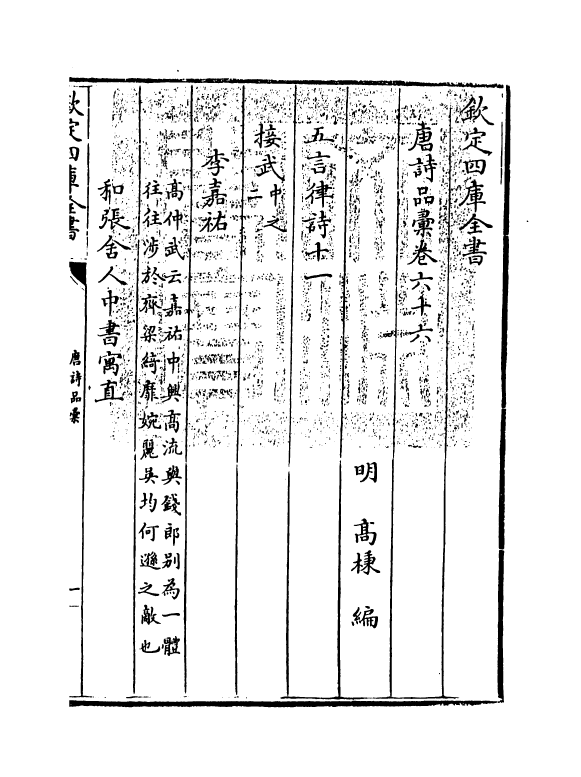 欽定四庫全書
唐詩品彚卷六十六
明 髙棅 編
五言律詩十一
接武中之二
李嘉祐
髙仲武云嘉祐中興髙流與錢郎别為一體
往往涉於齊梁綺靡婉麗吳均何遜之敵也
和張舍人中書寓直
欽定四庫全書
唐詩品彚
一